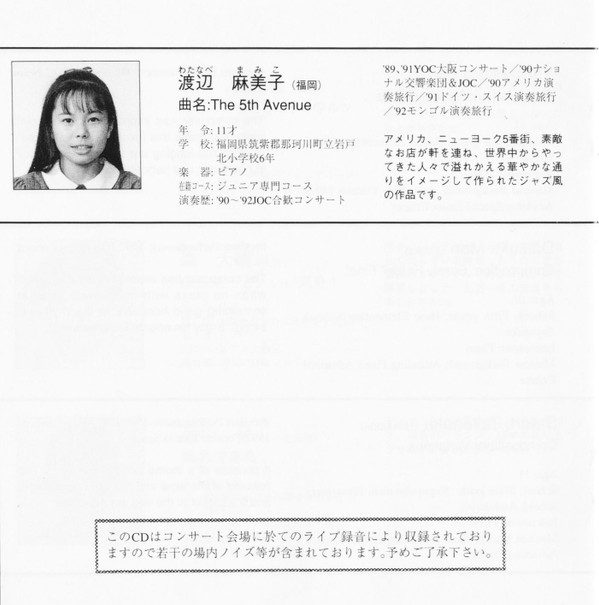 わたなべ まみこ
渡辺 麻美子(福岡)
曲名:The 5th Avenue
年 令:11才
学 校:福岡県筑紫郡那珂川町立岩戸
北小学校6年
楽 器:ピアノ
在籍コース:ジュニア専門コース
演奏歴:'90〜'92JOC合歓コンサート
'89、'91YOC大阪コンサート/'90ナショ
ナル交響楽団&JOC/'90アメリカ演
奏旅行/'91ドイツ・スイス演奏旅行
/'92モンゴル演奏旅行
アメリカ、ニューヨーク5番街、素敵
なお店が軒を連ね、世界中からやっ
てきた人々で溢れかえる華やかな通
りをイメージして作られたジャズ風
の作品です。
このCDはコンサート会場に於てのライブ録音により収録されており
ますので若干の場内ノイズ等が含まれております。予めご了承下さい。